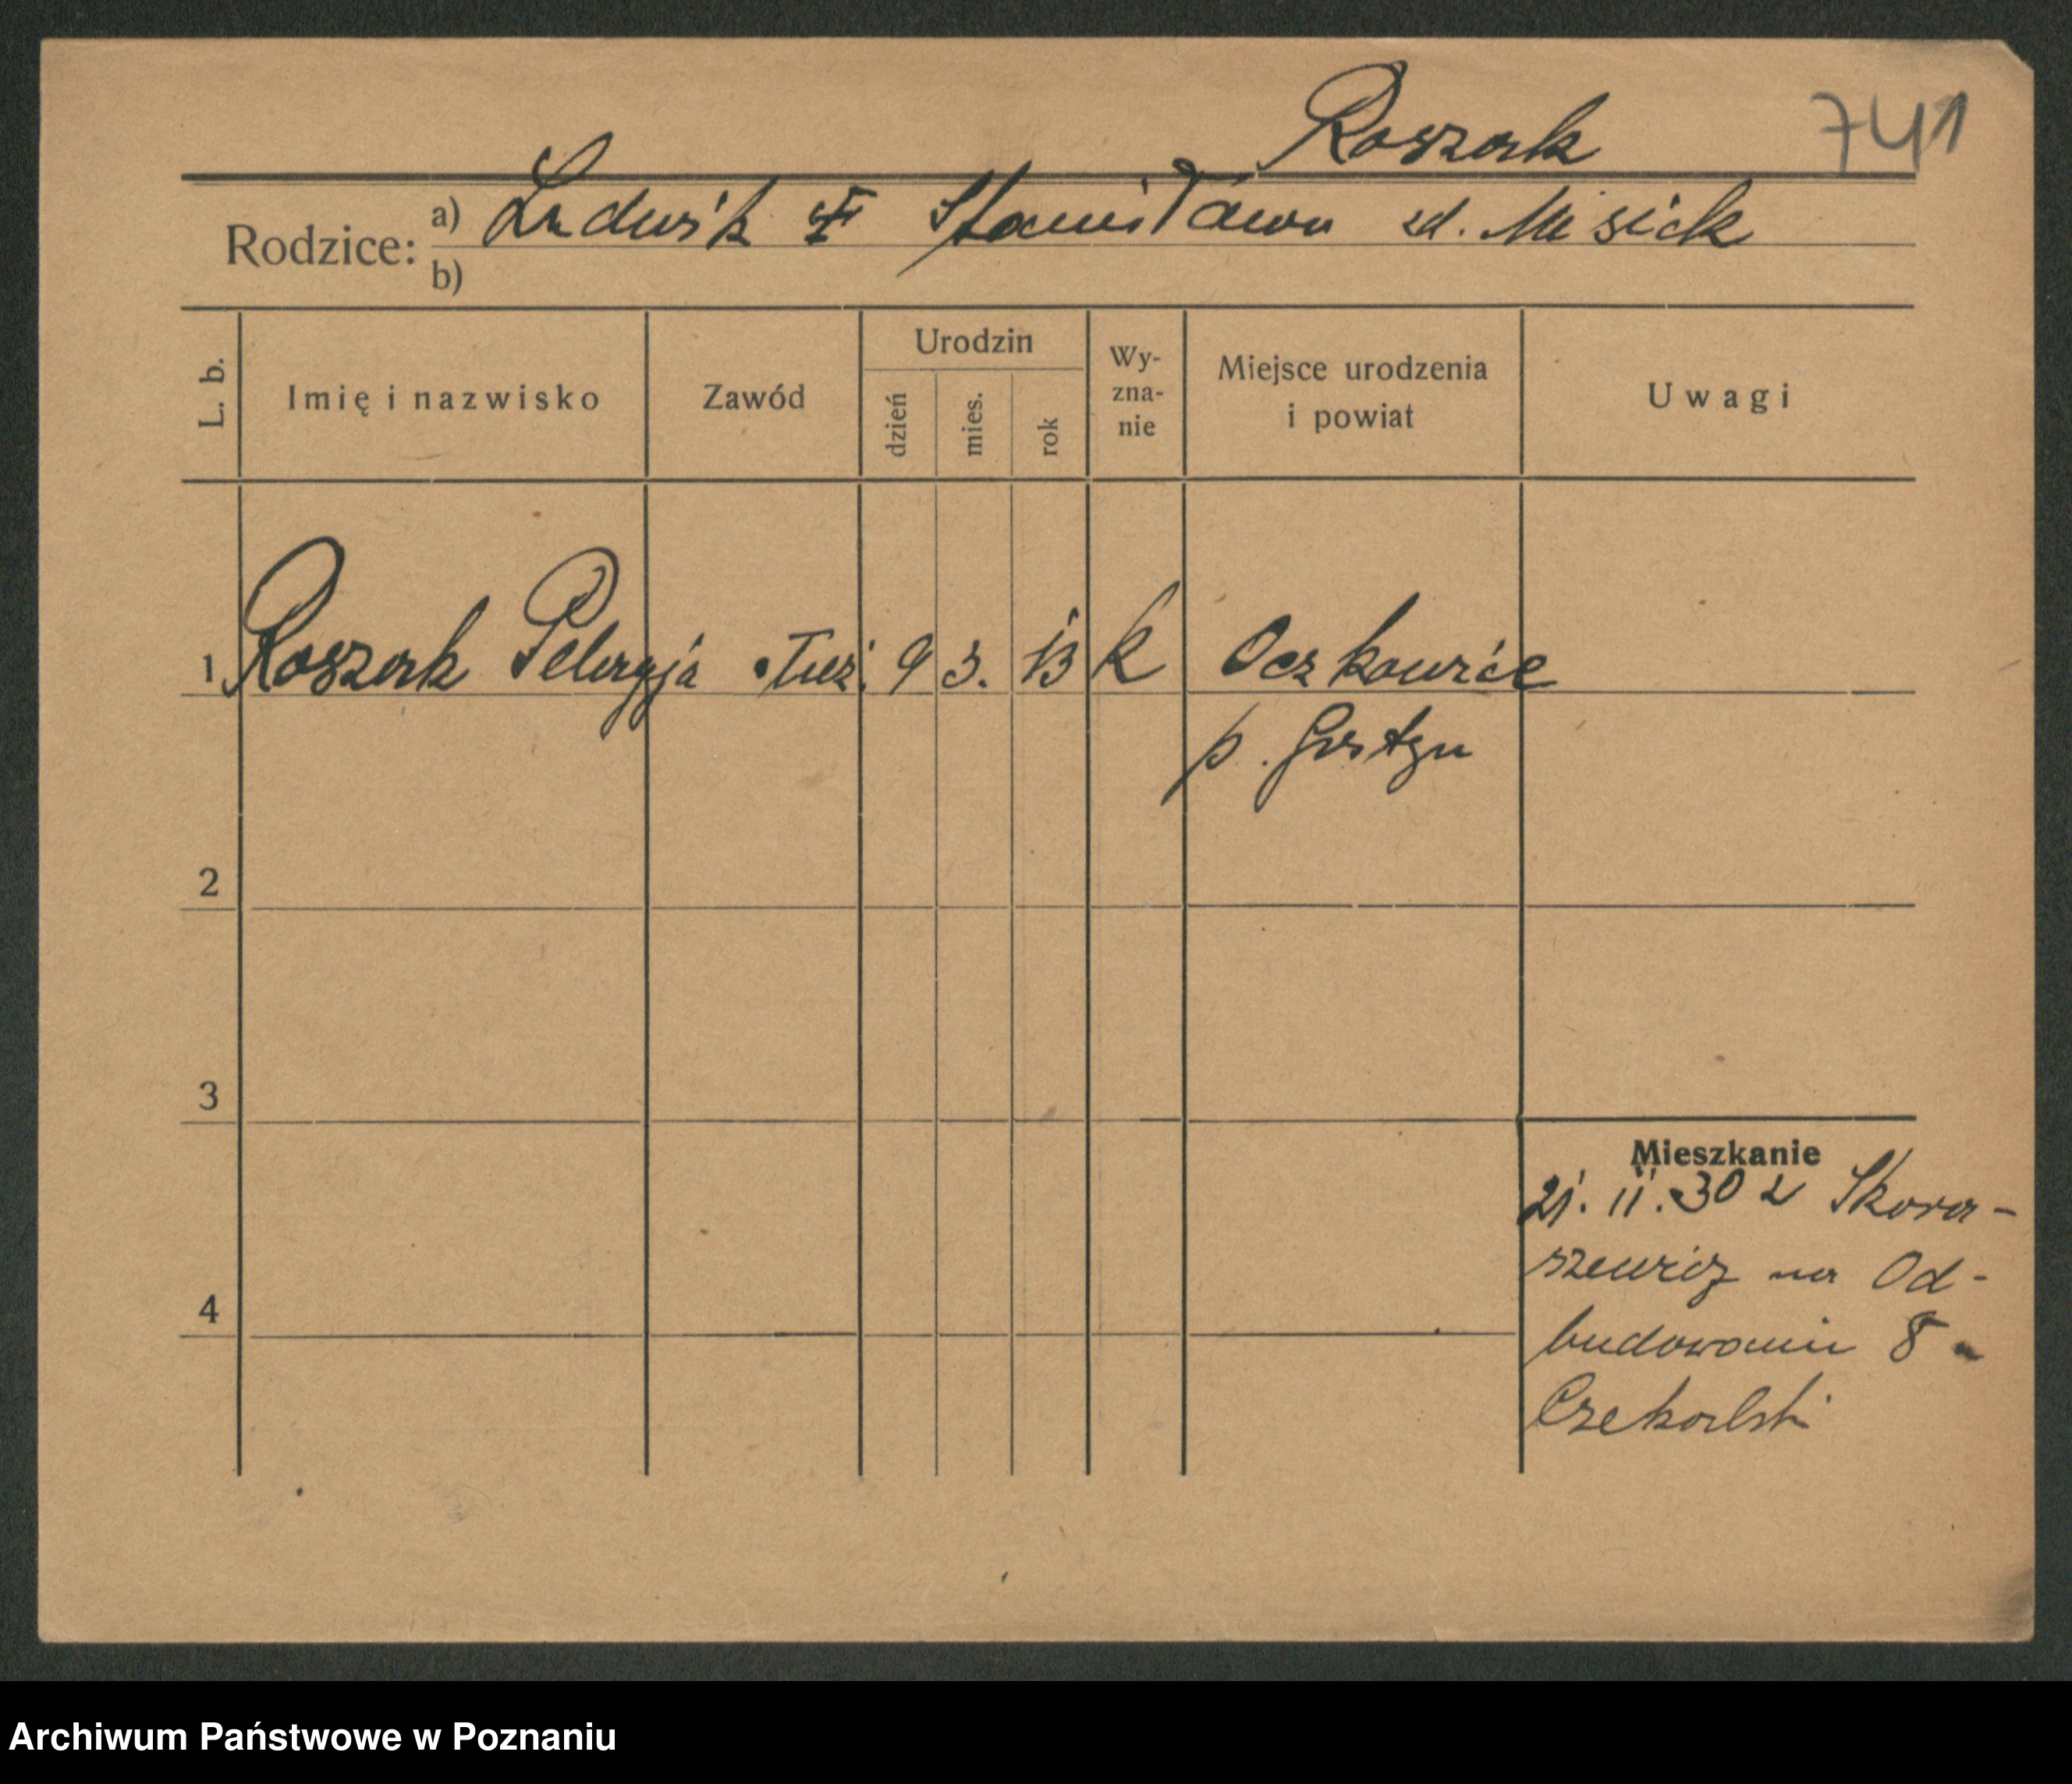 Roszak 741
Rodzice: a) Ludwik I Stanisława zd. Misiek
b)
L. b. Imię i nazwisko Zawód Urodzin dzień mies. rok Wy-zna-nie Miejsce urodzenia i powiat Uwagi
1 Roszak Pelagja służ. 9 3. 13 k Oczkowice
p. Gostyn
2
3
Mieszkanie
21. 11. 30 z Skora-
szewicz na Od-
4
budowaniu 8
Czekalski
Archiwum Państwowe w Poznaniu